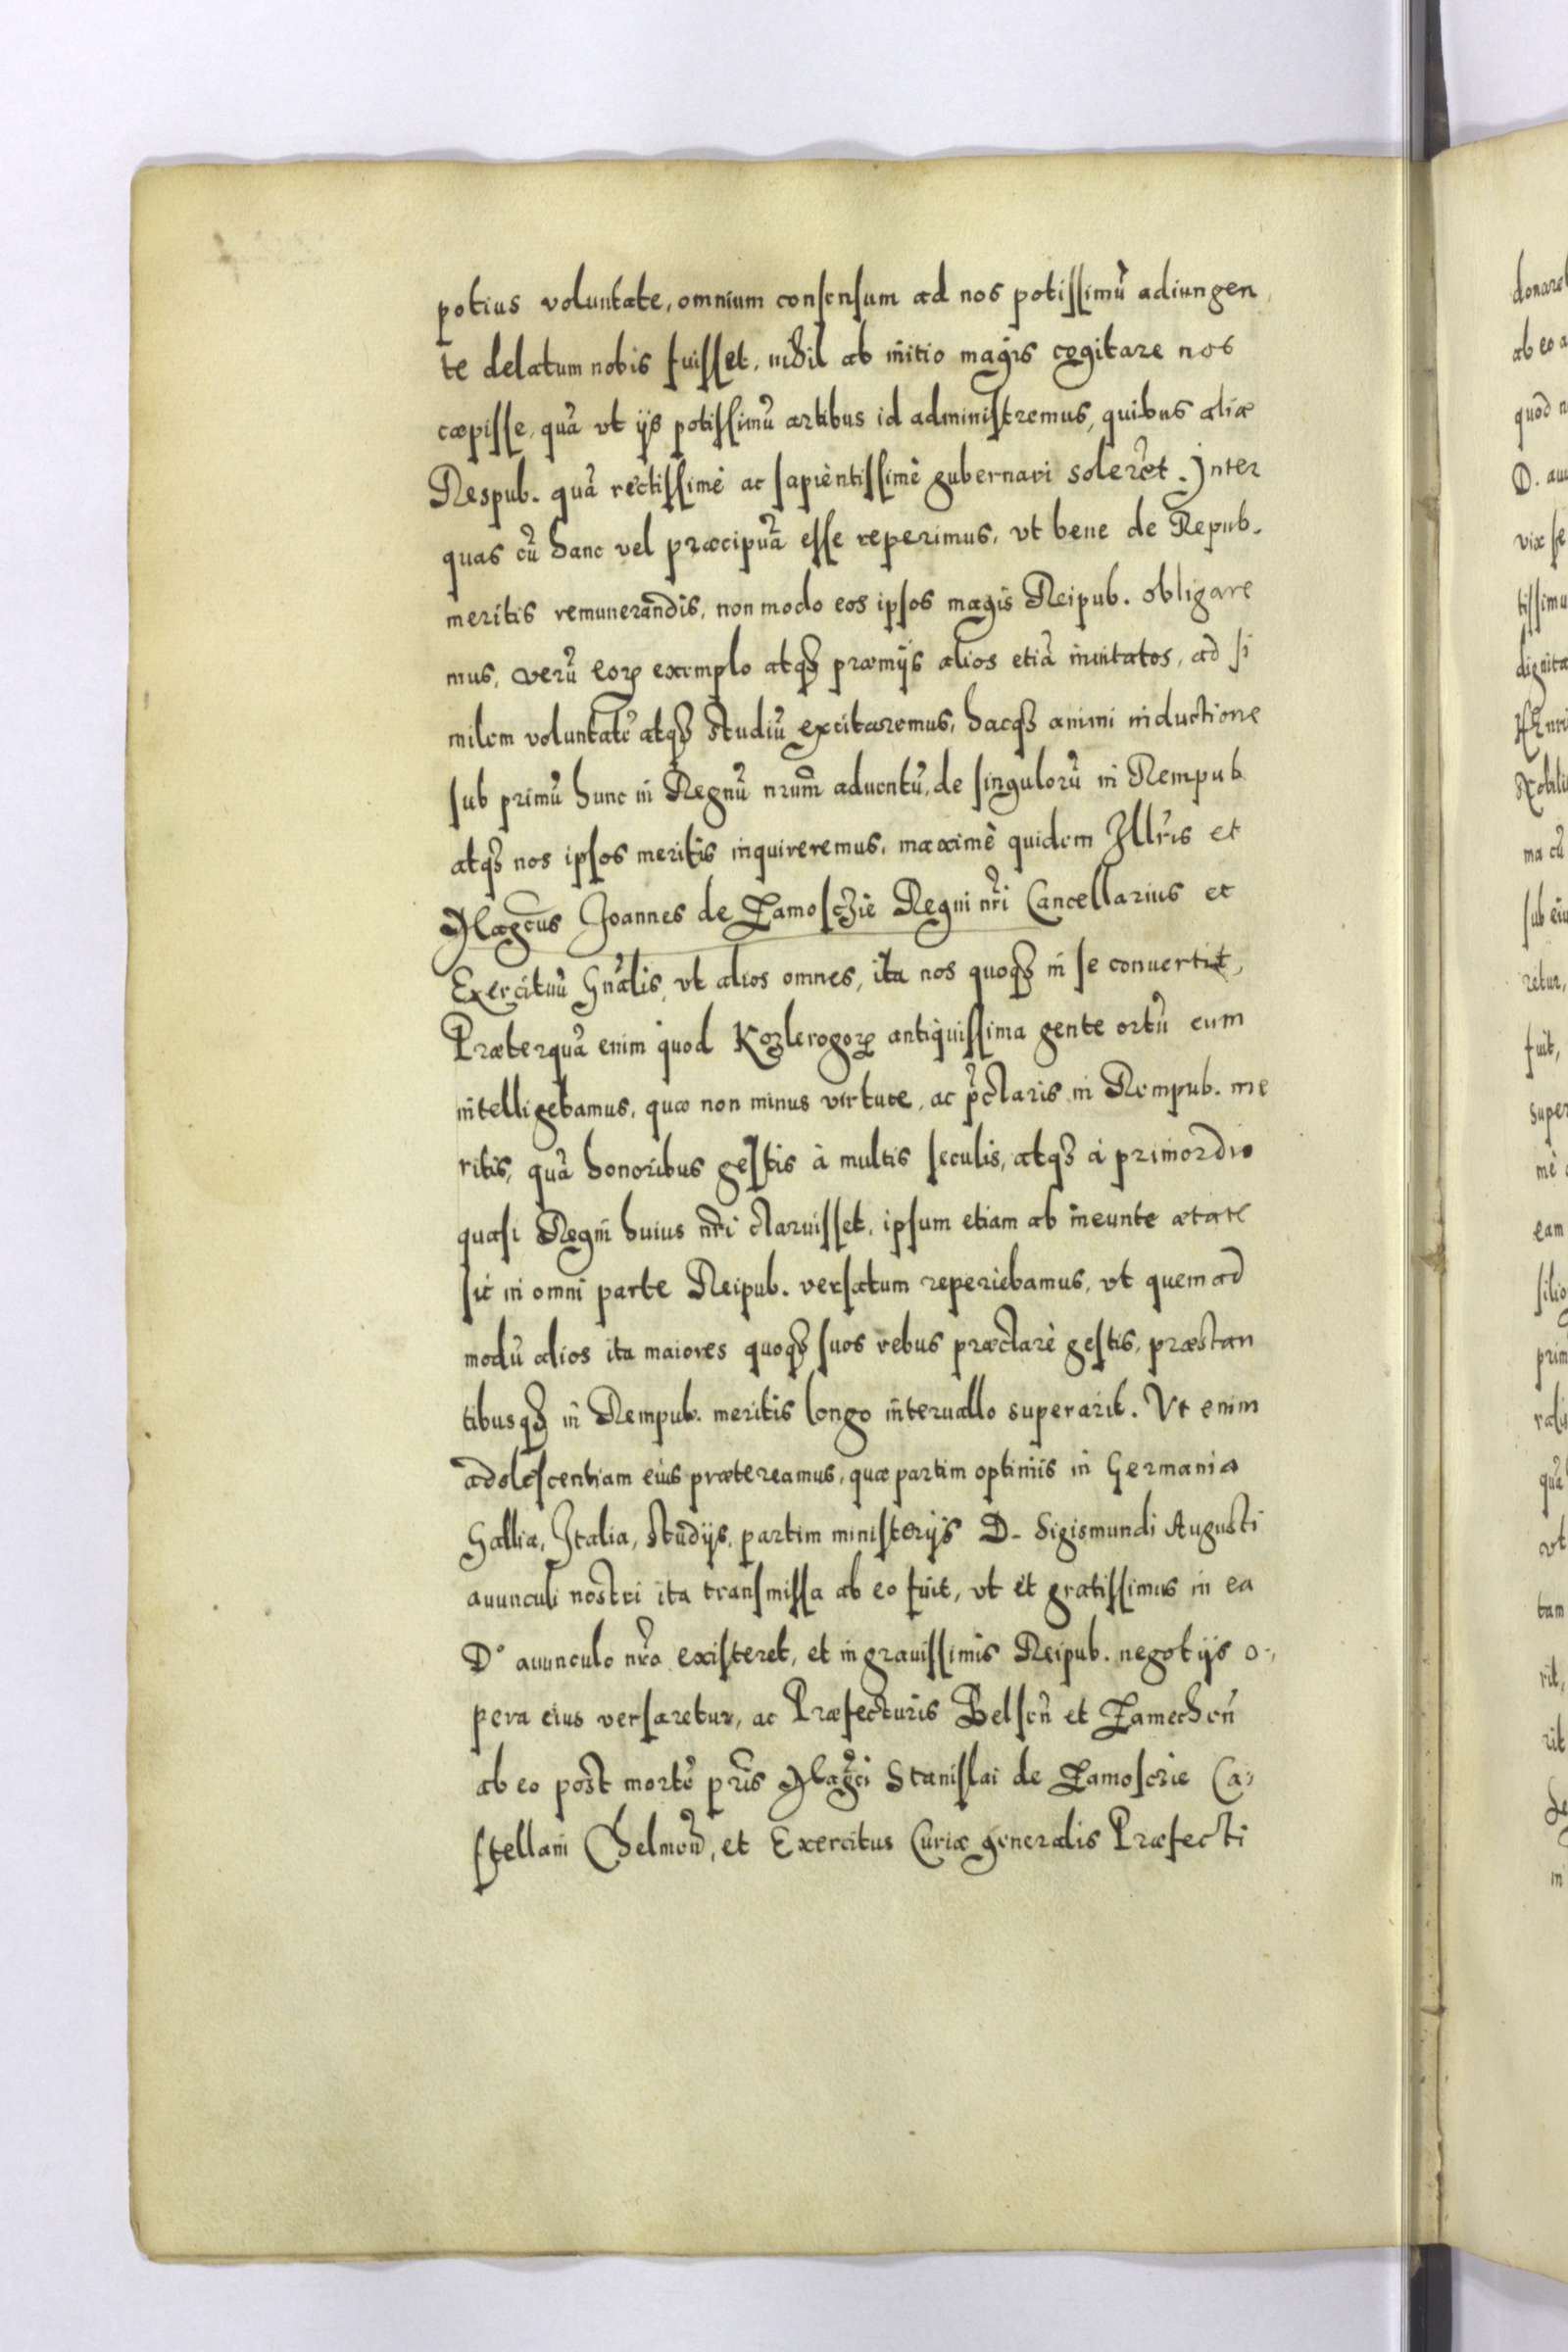 potius voluntate, omnium consensum ad nos potissimũ adiungen
te delatum nobis fuisset, nihil ab initio magis cogitare nos
cæpisse, quã vt ijs potissimũ artibus id administremus, quibus aliæ
Respub. quã rectissimè ac sapientissimè gubernari solerẽt. Inter
quas cũ hanc vel præcipuã esse reperimus, vt bene de Repub.
meritis remunerandis, non modo eos ipsos magis Reipub. obligare
mus, verũ eoꝝ exemplo atqꝫ præmijs alios etiã inuitatos, ad si
milem voluntatẽ atqꝫ studiũ excitaremus, hacqꝫ animi inductione
sub primũ hunc in Regnũ nrum̃ aduentũ, de singulorũ in Rempub
atqꝫ nos ipsos meritis inquireremus, maximè quidem Illr̃is et
Magc̃us Joannes de Zamosczie Regni nr̃i Cancellarius et
Exercituũ Gnãlis, vt alios omnes, ita nos quoqꝫ in se conuertit,
Præterquã enim quod Kozlerogoꝝ antiquissima gente ortũ eum
intelligebamus, quæ non minus virtute, ac p̃claris in Rempub. me
ritis, quã honoribus gestis à multis seculis, atqꝫ à primordio
quasi Regni huius nr̃i claruisset, ipsum etiam ab ineunte ætate
sic in omni parte Reipub. versatum reperiebamus, vt quemad
modũ alios ita maiores quoqꝫ suos rebus præclarè gestis, præstan
tibusqꝫ in Rempub. meritis longo interuallo superarit. Vt enim
adolescentiam eius prætereamus, quæ partim optimis in Germania
Gallia, Italia, studijs, partim ministerijs D. Sigismundi Augusti
auunculi nostri ita transmissa ab eo fuit, vt et gratissimus in ea
D° auunculo nr̃o existeret, et in grauissimis Reipub. negotijs o-
pera eius versaretur, ac Præfecturis Belseñ et Zamecheñ
ab eo post mortẽ pr̃is Magc̃i Stanislai de Zamosczie Ca-
stellani Chelmeñ, et Exercitus Curiæ generalis Præfecti